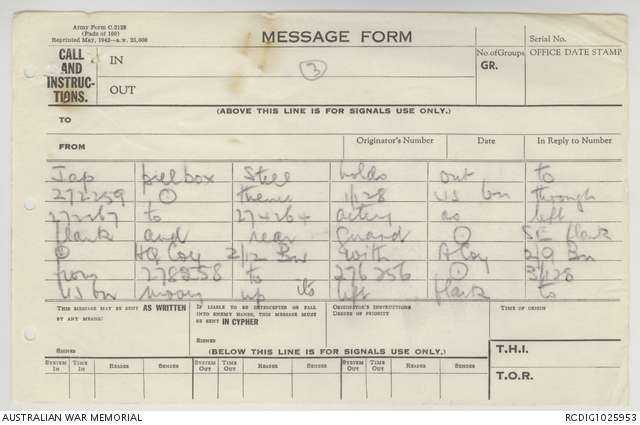 Army Form C.2128
(Pads of 100)
Reprinted May, 1942—a.w. 25,000
MESSAGE FORM
Serial No.
CALL AND INSTRUCTIONS.
IN
③
No. of Groups
GR.
OFFICE DATE STAMP
OUT
(ABOVE THIS LINE IS FOR SIGNALS USE ONLY.)
TO
FROM
Originator's Number
Date
In Reply to Number
Jap pillbox still holds out to
272259 ⊙ thence 1/128 US bn through
272267 to 274264 acting as left
flank and rear guard ⊙ SE flank
⊙ HQ Coy 2/12 Bn with A Coy 2/9 Bn
from 278258 to 276256 ⊙ 3/128
US bn moving up to left flank to
THIS MESSAGE MAY BE SENT AS WRITTEN BY ANY MEANS.
SIGNED
IF LIABLE TO BE INTERCEPTED OR FALL INTO ENEMY HANDS, THIS MESSAGE MUST BE SENT IN CYPHER
SIGNED
ORIGINATOR'S INSTRUCTIONS
DEGREE OF PRIORITY
TIME OF ORIGIN
(BELOW THIS LINE IS FOR SIGNALS USE ONLY.)
SYSTEM IN
TIME IN
READER
SENDER
SYSTEM OUT
TIME OUT
READER
SENDER
SYSTEM OUT
TIME OUT
READER
SENDER
T.H.I.
T.O.R.
AUSTRALIAN WAR MEMORIAL
RCDIG1025953